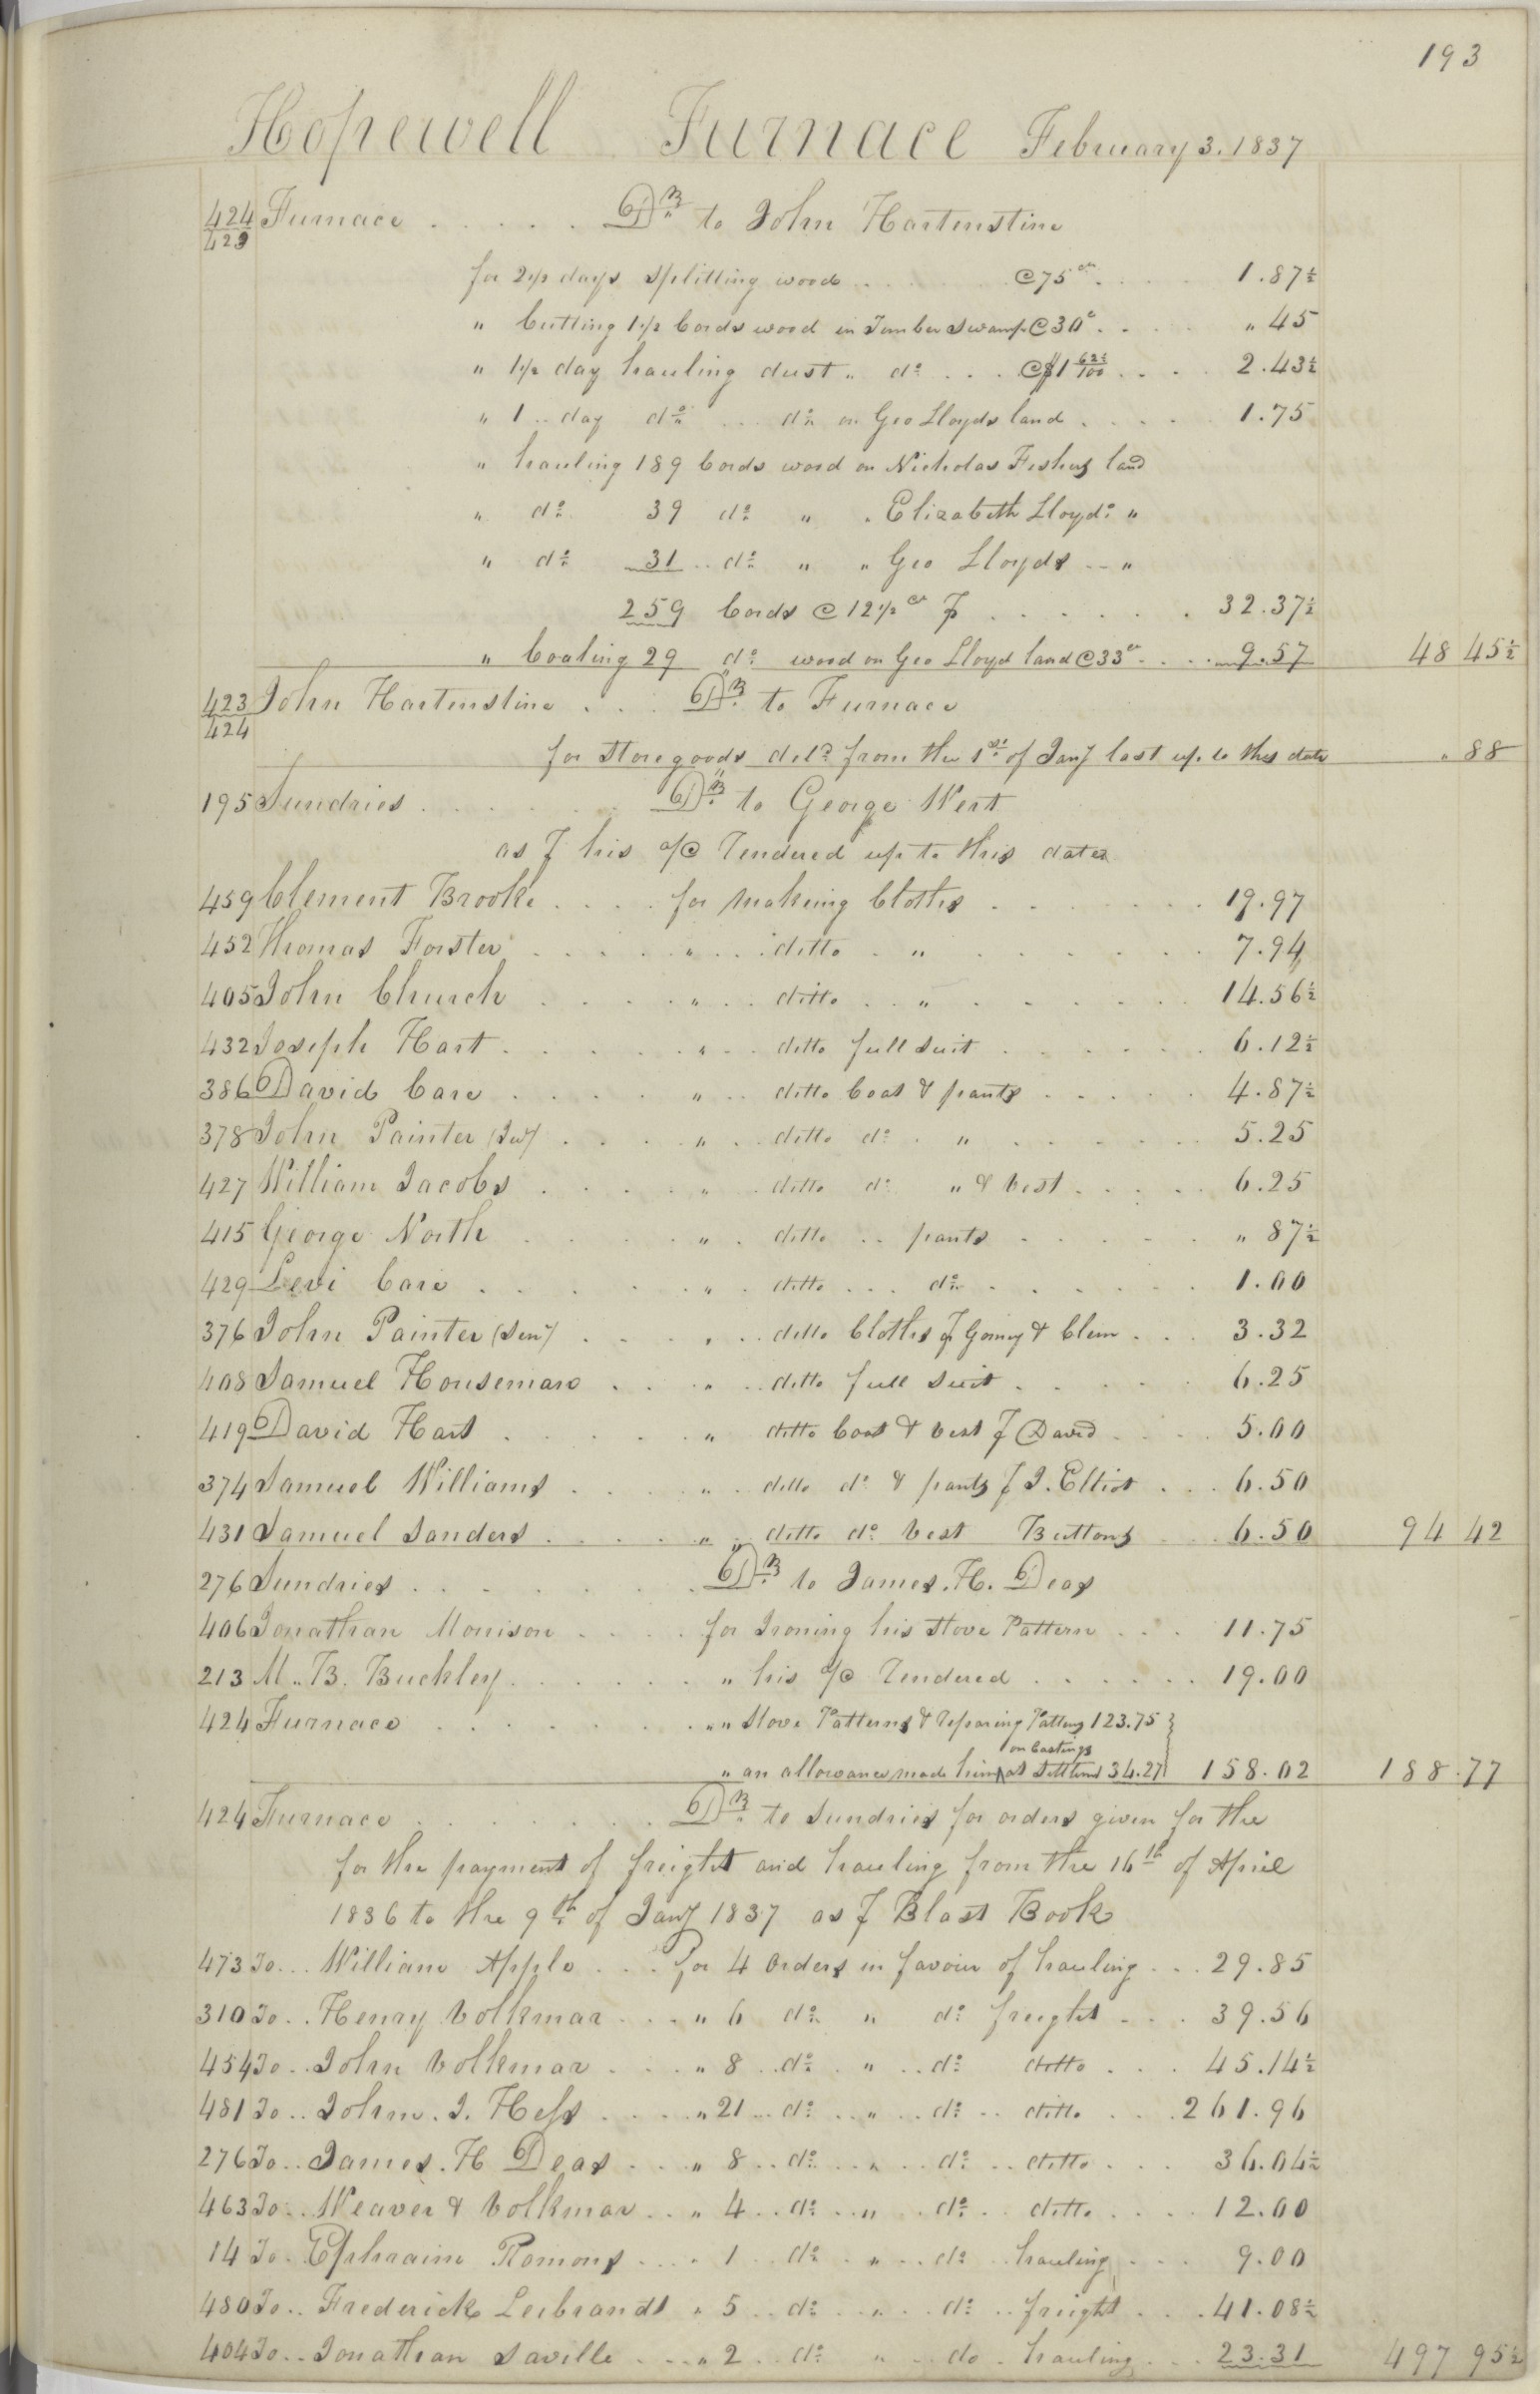 193
Hopewell Furnace February 3. 1837
424/423 Furnace . . . . . Dr to John Hartenstine
for 2 1/2 days splitting wood . . . @ 75 cts . . 1.87 1/2
" Cutting 1 1/2 Cords wood in Timber Swamp @ 30 c . . " 45
" 1 1/2 day hauling dust " do . . . @ $1 62 1/2/100 . . . 2.43 1/2
" 1 .. day do . . . do on Geo Lloyds land . . . . 1.75
" hauling 189 Cords wood on Nicholas Fishers land
" do 39 do " " Elizabeth Lloyds "
" do 31 .. do " " Geo Lloyds .. "
259 Cords @ 12 1/2 cts . . . . . 32.37 1/2
" Coaling 29 do wood on Geo Lloyd land @ 33 cts . . . 9.57 48 45 1/2
423/424 John Hartenstine . . . Dr to Furnace
for Store goods deld from the 1st of Jany last up to this date " 88
195 Sundries . . . . . Dr to George West
as p his a/c Rendered up to this date
459 Clement Brooke . . . . for making Cloths . . . . . 19.97
452 Thomas Forster . . . . . " . . ditto . " . . . . . 7.94
405 John Church . . . . " . . ditto . . " . . . . . 14.56 1/2
432 Joseph Hart . . . . . " . . ditto full suit . . . . . 6.12 1/2
386 David Care . . . . " . . ditto Coat & pants . . . . . 4.87 1/2
378 John Painter (Junr) . . . . " . ditto do . " . . . . . 5.25
427 William Jacobs . . . . " . ditto do " & Vest . . . . . 6.25
415 George North . . . . " . ditto . . pants . . . . . " 87 1/2
429 Levi Care . . . . . " . ditto . . . do . . . . . 1.00
376 John Painter (Senr) . . . . " . . ditto Cloths p Gorney & Clem . . . 3.32
408 Samuel Houseman . . . " . . ditto full suit . . . . . 6.25
419 David Hart . . . . . " ditto Coat & Vest p David . . . . 5.00
374 Samuel Williams . . . . " . ditto do & pants p J. Elliot . . . 6.50
431 Samuel Sanders . . . . " . ditto do Vest Buttons 6.50 94 42
276 Sundries . . . . . . Dr to James. H. Deas
406 Jonathan Morrison . . . . for Ironing his Stove Pattern . . . 11.75
213 M. B. Buckley . . . . . " his a/c Rendered . . . . . 19.00
424 Furnace . . . . . . " " Stove Patterns & Reparing Patterns 123.75
on Castings
" an allowance made him ^ at Settlemt 34.27 158.02 188.77
424 Furnace . . . . . . Dr to Sundries for orders given for the
for the payment of freight and hauling from the 16th of April
1836 to the 9th of Jany 1837 as p Blast Book
473 To . . . William Apple . . . for 4 Orders in favour of hauling . . . 29.85
310 To . . Henry Volkmar . . . " 6 do " do freight . . . 39.56
454 To . . John Volkmar . . . " 8 . . do . " . . do ditto . . . 45.14 1/2
481 To . . John. J. Hess . . . . " 21 . . do . . " . . do . . ditto . . . 261.96
276 To . . James. H Deas . . . " 8 . . do . . " . . do . . ditto . . . 36.04 1/2
463 To . . Weaver & Volkmar . . " 4 . . do . . " . . do . . ditto . . . . 12.00
14 To . Ephraim Romons . . . . " 1 . . do . " . . do . hauling . . . 9.00
480 To . . Frederick Leibrandt " 5 . . do . . " . . do . . freight . . . 41.08 1/2
404 To . . Jonathan Saville . . . " 2 . . do " . . do . hauling . . . 23.31 497 95 1/2